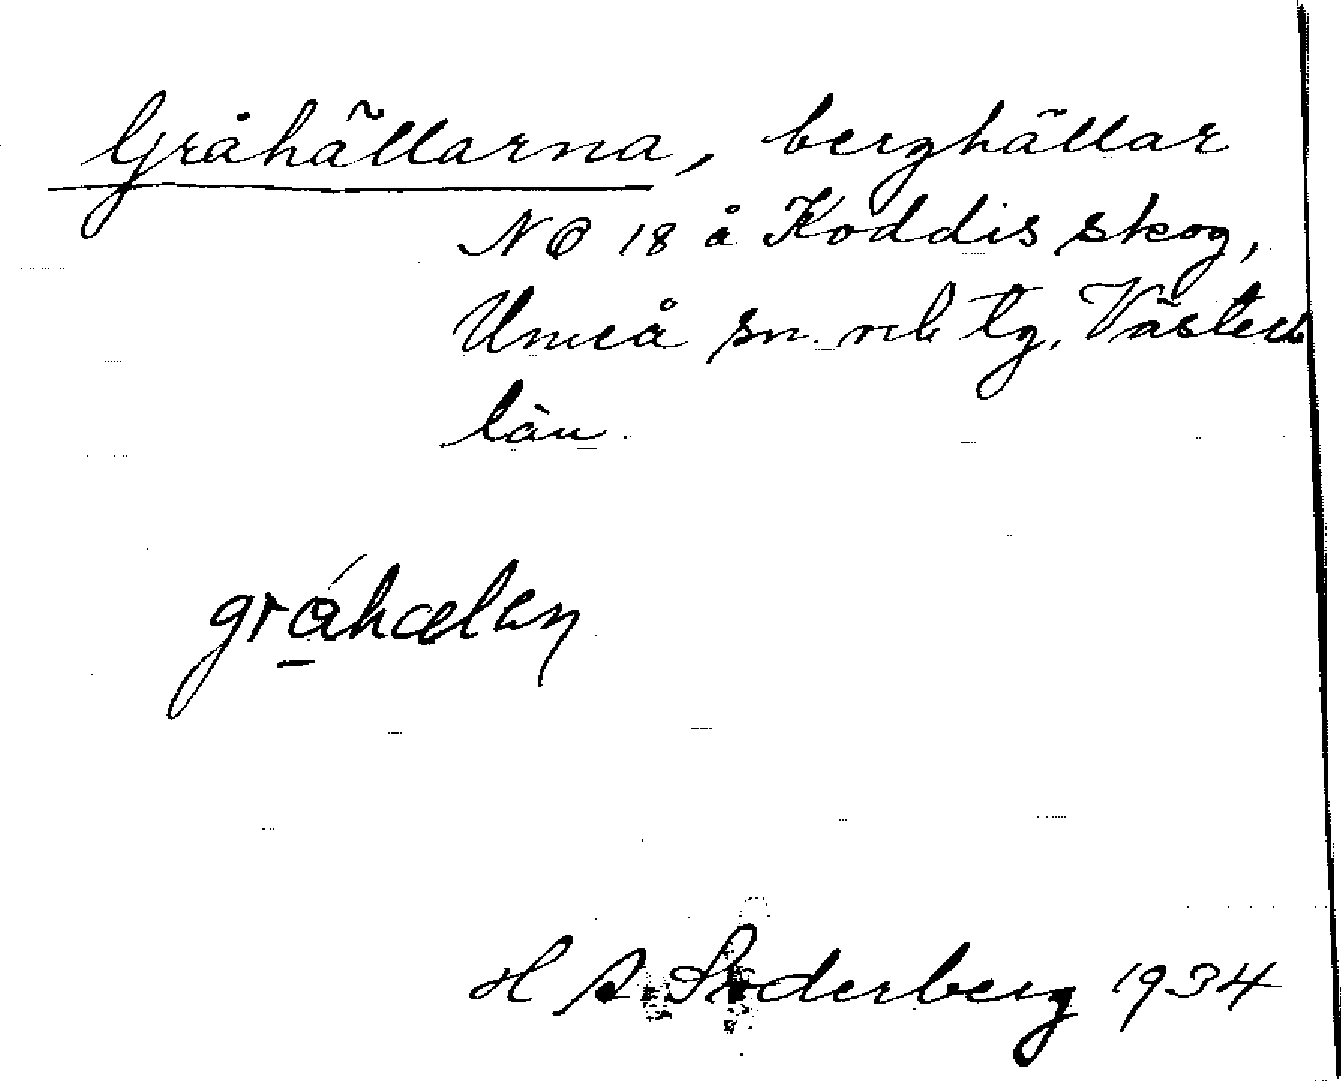 Gråhällarna, berghällar
NO 18 å Koddis skog,
Umeå sn. o. tg. Västerb
län.
gråhælen
H S. Söderberg 1934